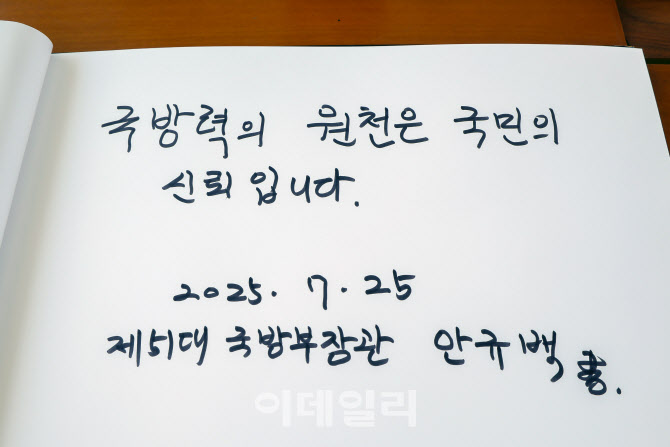 국방력의 원천은 국민의
신뢰입니다.
2025. 7. 25
제51대 국방부장관 안규백 書.
이데일리